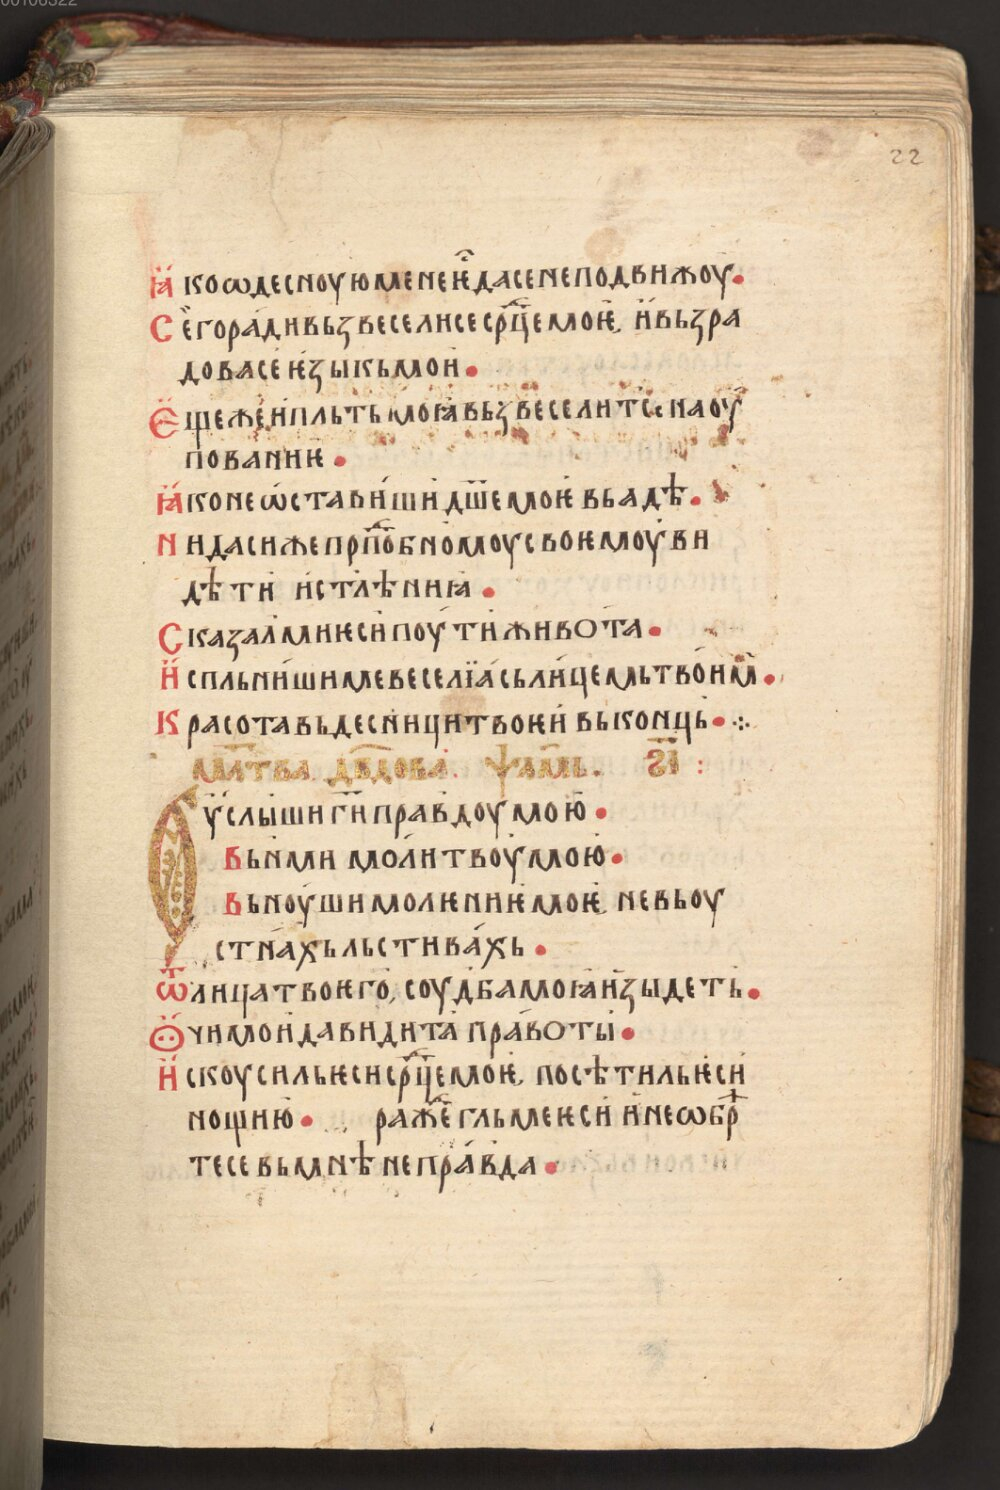 00106322
22
Ꙗ҆ко ѡдесноую менѥ҆ да се не подвижоу.
Сѐго ра́ди вьзвесели се ср҃це моѥ. и҆ вьзра
дова се ѥзыкь мои.
Е҆ще же и пльть моꙗ вьзвеселит се на оу҆
пованиѥ.
Ꙗ҆ко не ѡ҆стави́ши дш҃е моѥ вь адѣ.
Ни даси же прпⷣобномоу своѥмоу ви
дѣти истлѣниꙗ.
Сказал ми ѥси поути живота.
И҆спльни́ши ме веселїа́ сь ли́цемь твои́м.
Красота вь десни́ци твоѥи́ вь коньць.
Млⷮтва дв҃дова. ѱалмь. ѕ҃і :
Оу҆слы́ши г҃и правдоу мою.
Вьнми моли́твоу мою.
Вьноу́ши молѥниѥ моѥ. не вь оу
стнахь льстива́хь.
Ѿ лица твоѥго, соудба моꙗ и҆зыдеть.
Ѻчи мои да видита пра́воты.
И҆скоусиль ѥси ср҃це моѥ. посѣтиль ѥси
нощию. раж̾еⷢ҇ль ме ѥси и҆ не ѡбрⷮѣ
те се вь мнѣ непра́вда.